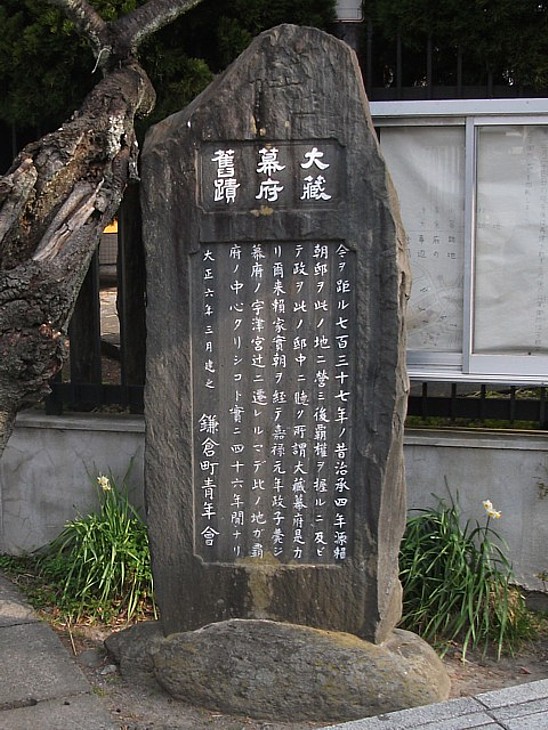 大藏
幕府
舊蹟
今ヲ距ル七百三十七年ノ昔治承四年源頼
朝邸ヲ此ノ地ニ營ミ後覇權ヲ握ルニ及ビ
テ政ヲ此ノ邸中ニ聴ク所謂大藏幕府是ナ
リ爾来頼家實朝ヲ経テ嘉禄元年政子薨ジ
幕府ノ宇津宮辻ニ遷レルマデ此ノ地ガ覇
府ノ中心タリシコト實ニ四十六年間ナリ
大正六年三月建之 鎌倉町青年會